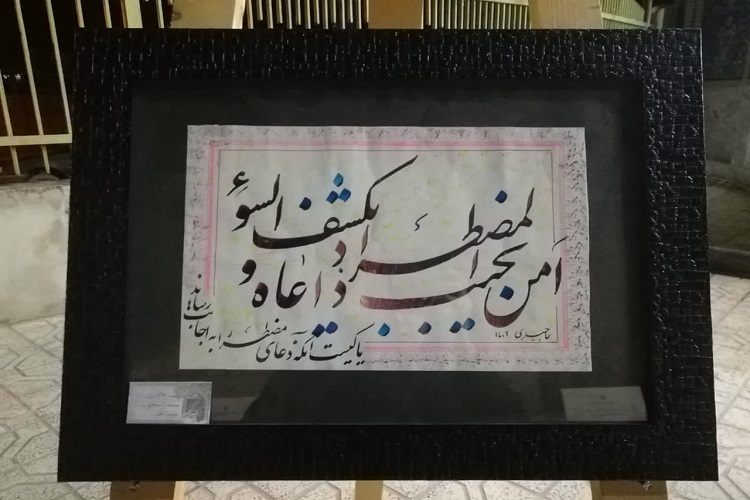 امن یجیب المضطر اذا
دعاه و یکشف السوء
یا کیست آنکه دعای مضطر را به اجابت رساند
۱۴۰۲